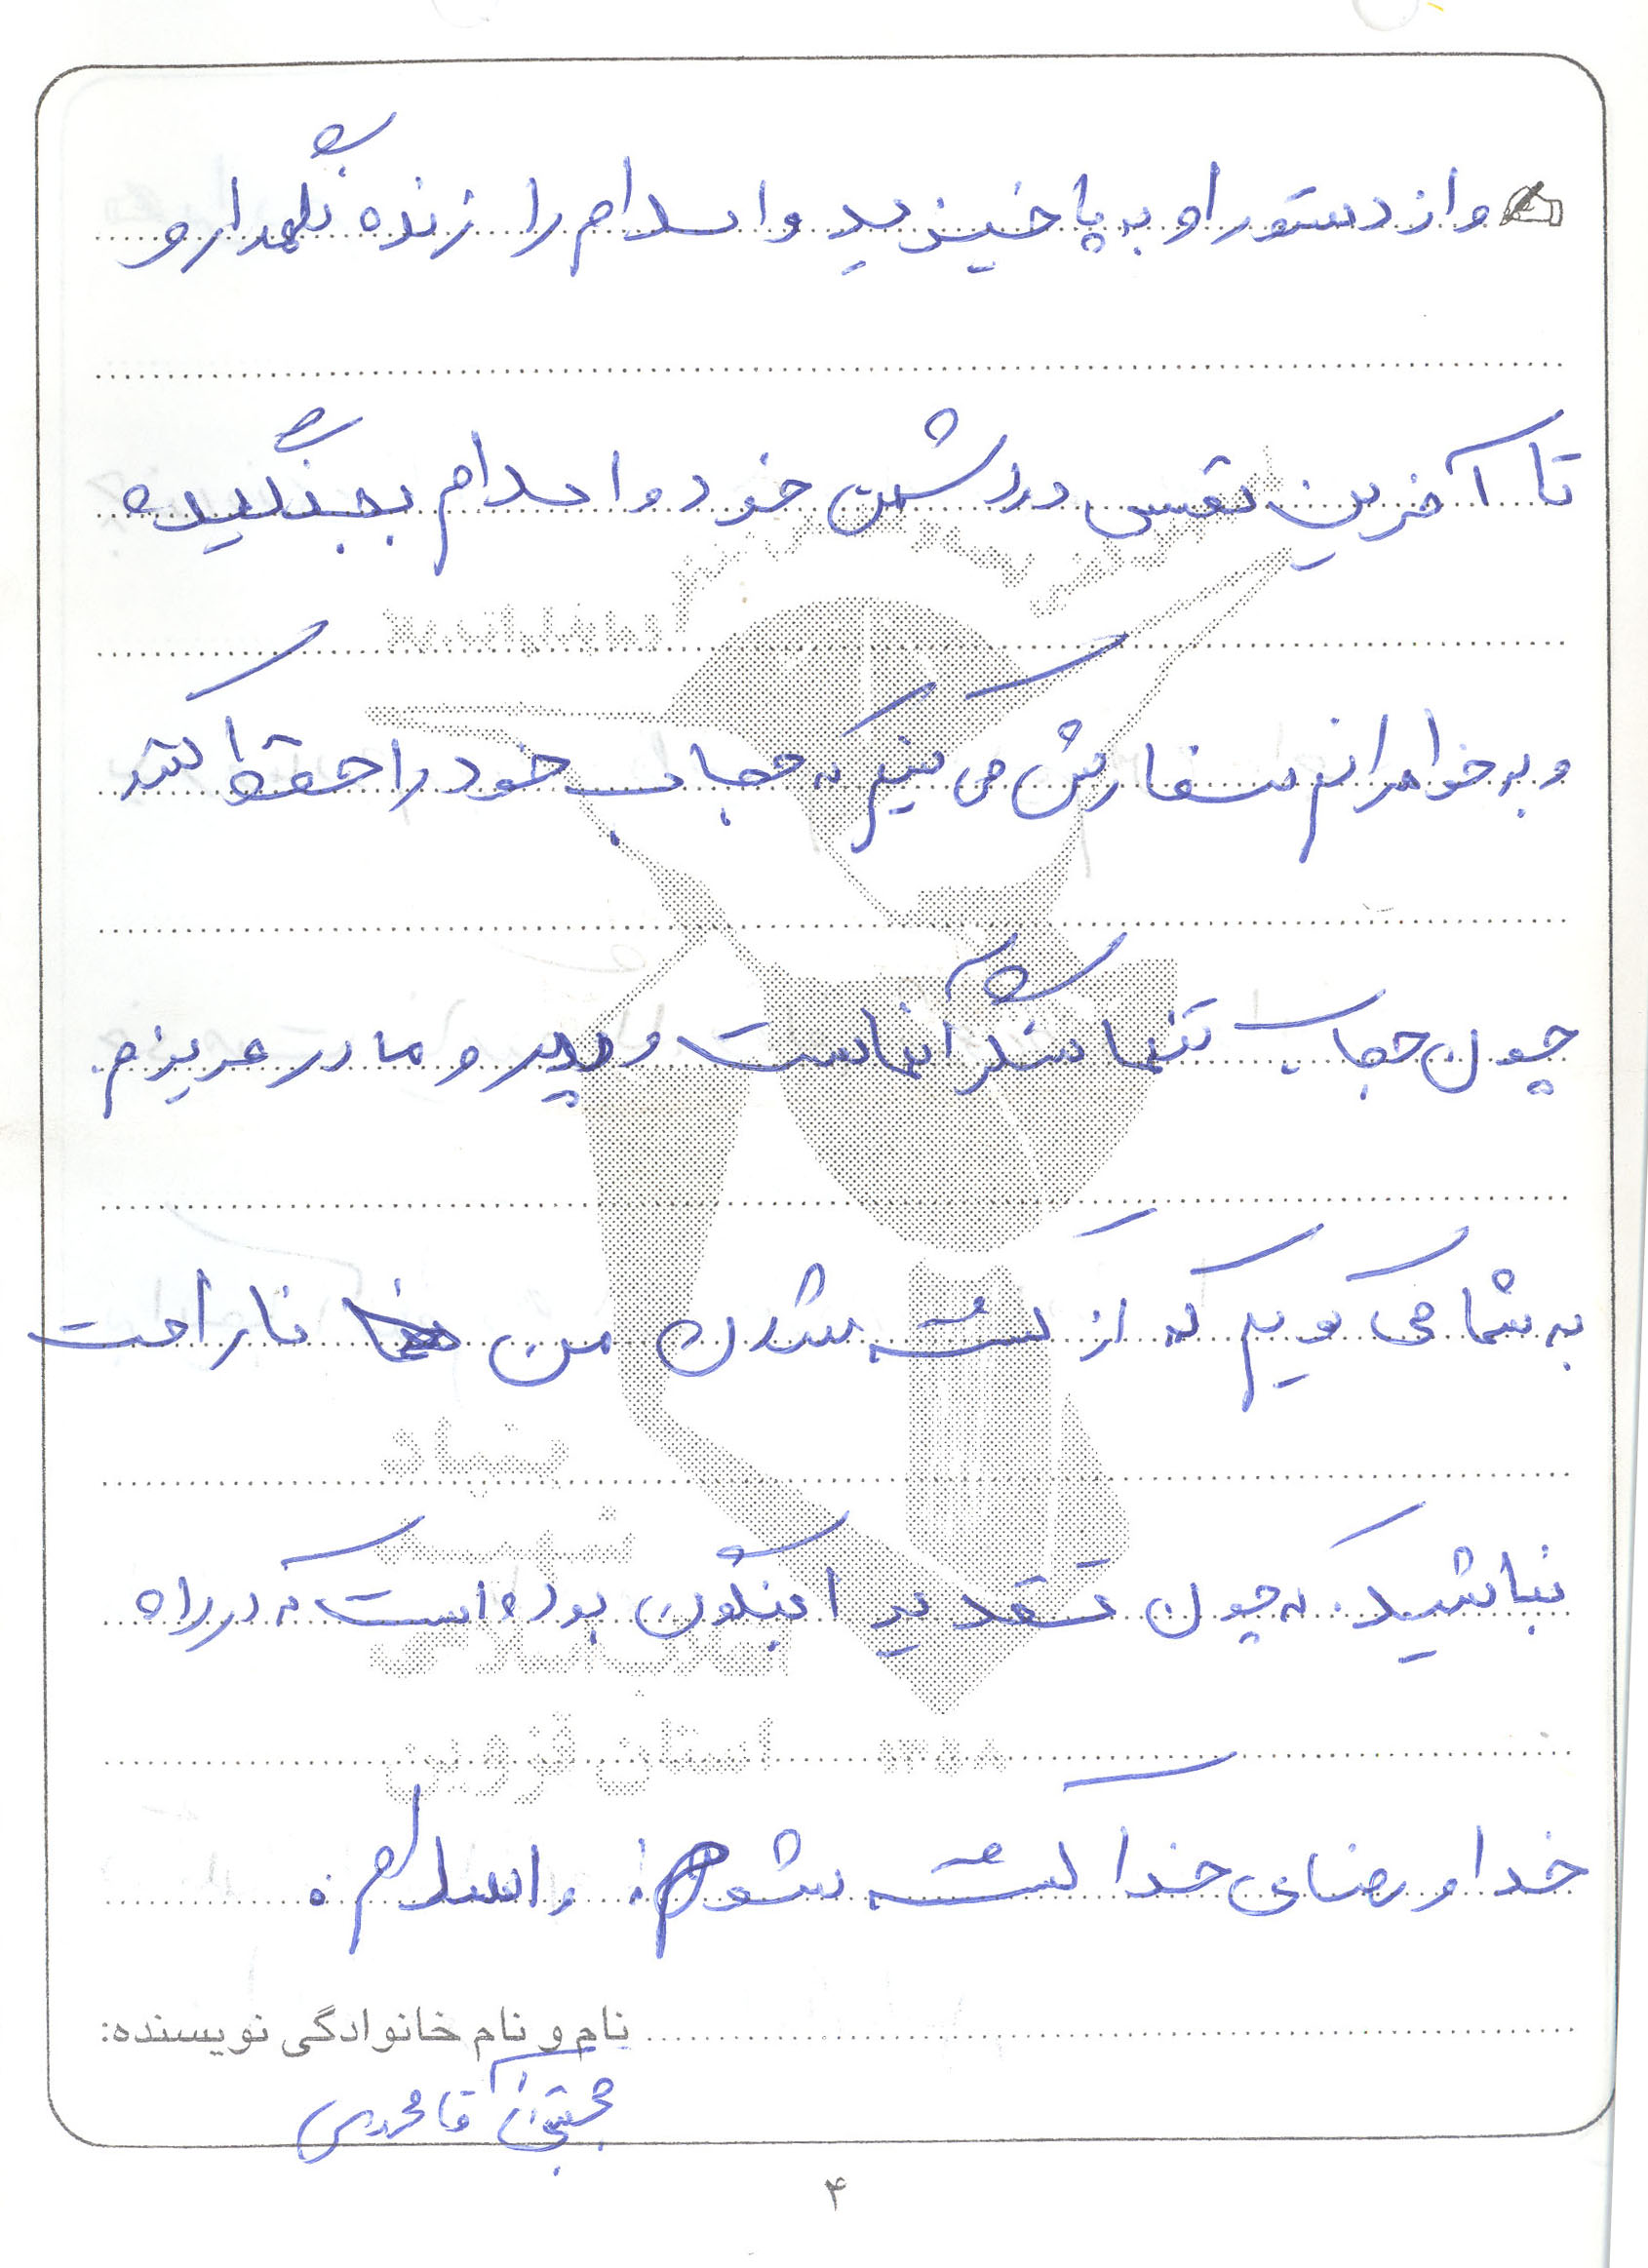 و از دستور او به پا خیزید و اسلام را زنده نگهدار و
تا آخرین نفس در دشمن خود و اسلام بجنگید
و به خواهرانم سفارش می کنیم که حجاب خود را حفظ کنند
چون حجاب تنها سنگر آنهاست و پدر و مادر عزیزم.
به شما می گویم که از کشته شدن من ناراحت
نباشید. که چون تقدیر اینگون بوده است که در راه
خدا و رضای خدا کشته شوم. والسلام.
نام و نام خانوادگی نویسنده:
مجتبی آقامحمدی
بنیاد
شهید
انقلاب اسلامی
استان قزوین
۱۳۵۸
۴